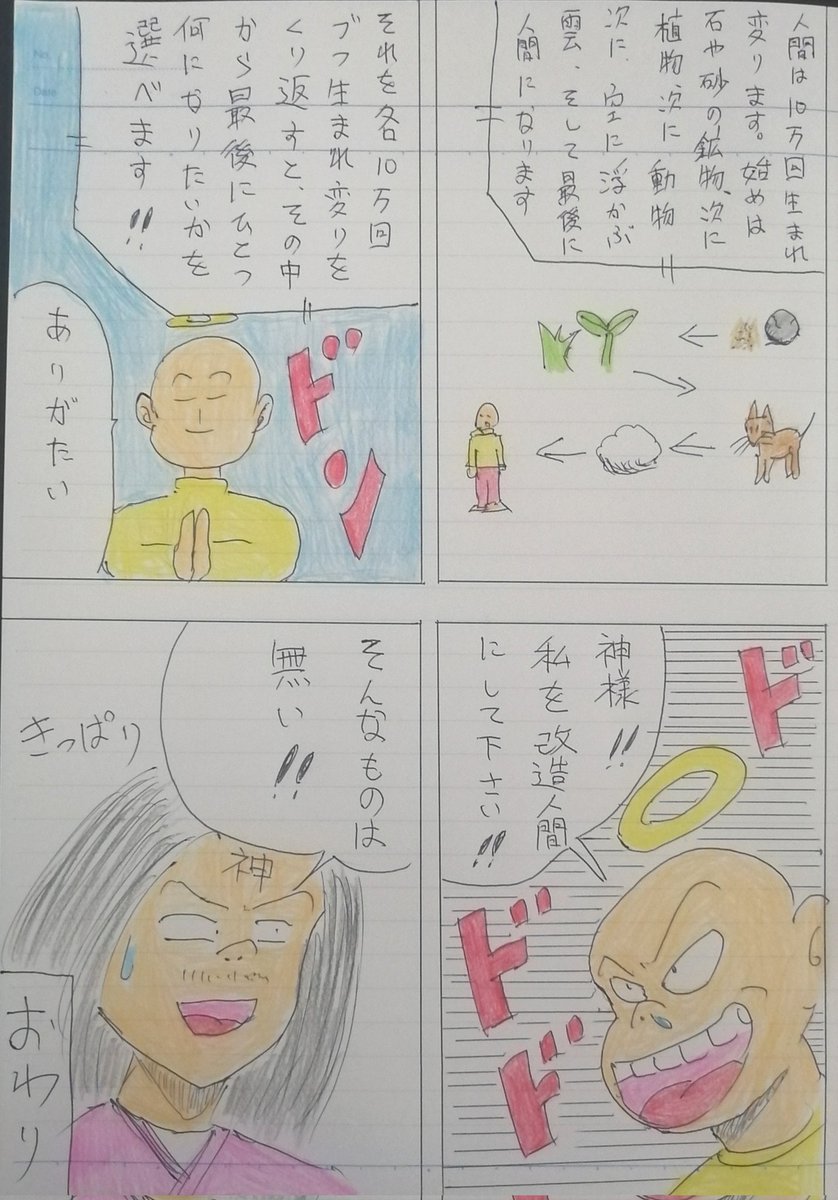 人間は10万回生まれ
変ります。始めは
石や砂の鉱物、次に
植物、次に動物
次に、空に浮かぶ
雲、そして最後に
人間になります
それを各10万回
ブつ生まれ変りを
くり返すと、その中
から最後にひとつ
何になりたいかを
選べます!!
ドン
ありがたい
ド
神様!!
私を改造人間
にして下さい!!
ド
ド
そんなものは
無い!!
きっぱり
神
おわり
No.
Date